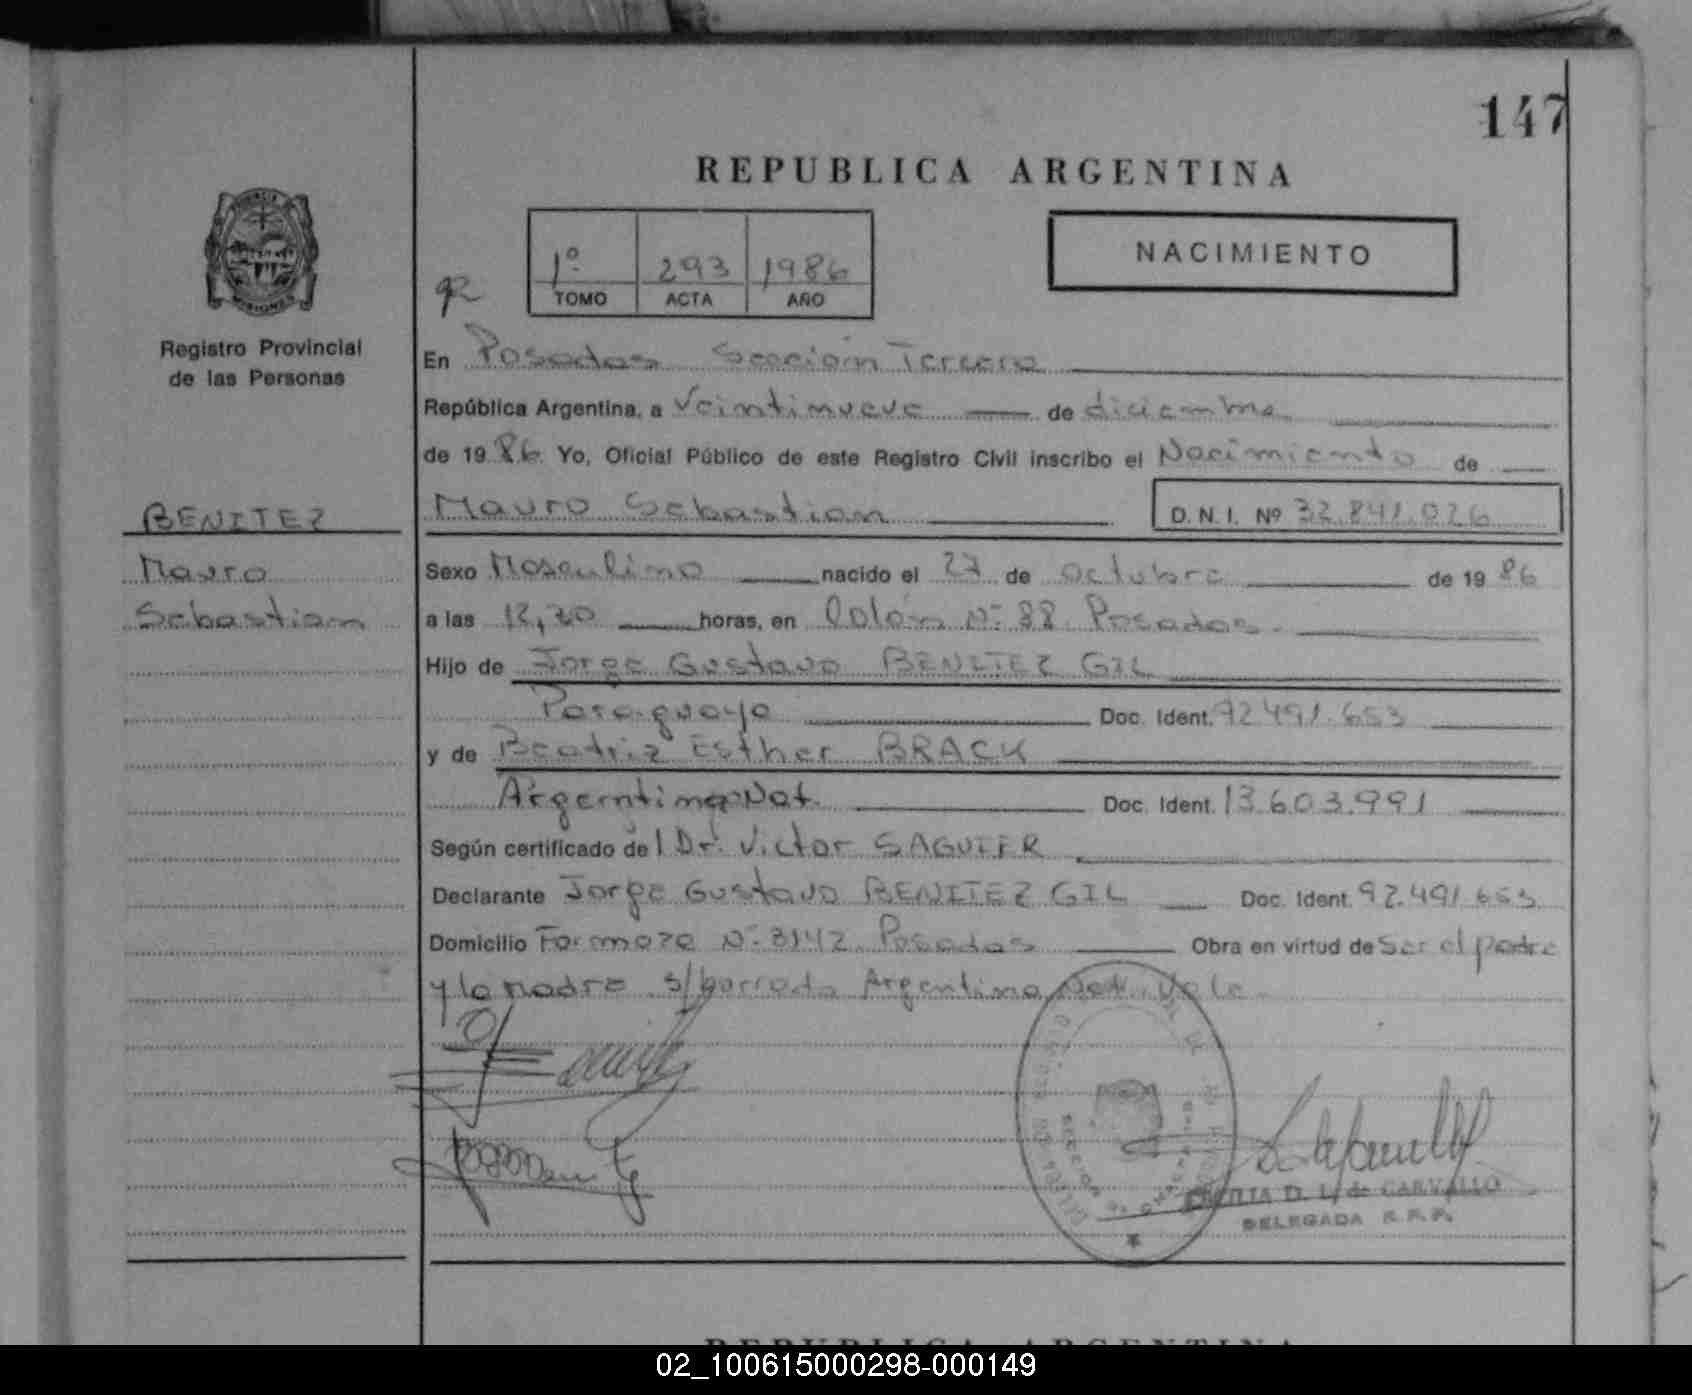 147
REPUBLICA ARGENTINA
1º 293 1986
TOMO ACTA AÑO
NACIMIENTO
MISIONES
Registro Provincial
de las Personas
En Posadas Sección Tercera
República Argentina, a Veintinueve de diciembre
de 1986 Yo, Oficial Público de este Registro Civil inscribo el Nacimiento de
BENITEZ
Mauro Sebastian D.N.I. Nº 32.841.026
Mauro
Sebastian
Sexo Masculino nacido el 27 de octubre de 1986
a las 12,30 horas, en Colón Nº 88 Posadas.
Hijo de Jorge Gustavo BENITEZ GIL
Paraguayo Doc. Ident. 92.491.653
y de Beatriz Esther BRACK
Argentina Nat. Doc. Ident. 13.603.991
Según certificado del Dr. Victor SAGUIER
Declarante Jorge Gustavo BENITEZ GIL Doc. Ident. 92.491.653
Domicilio Formoza Nº 3142 Posadas Obra en virtud de Ser el padre
y la madre s/borrado Argentina Nat. Vale
D. L. de CARVALLO
DELEGADA R.P.P.
REPUBLICA ARGENTINA
02_100615000298-000149